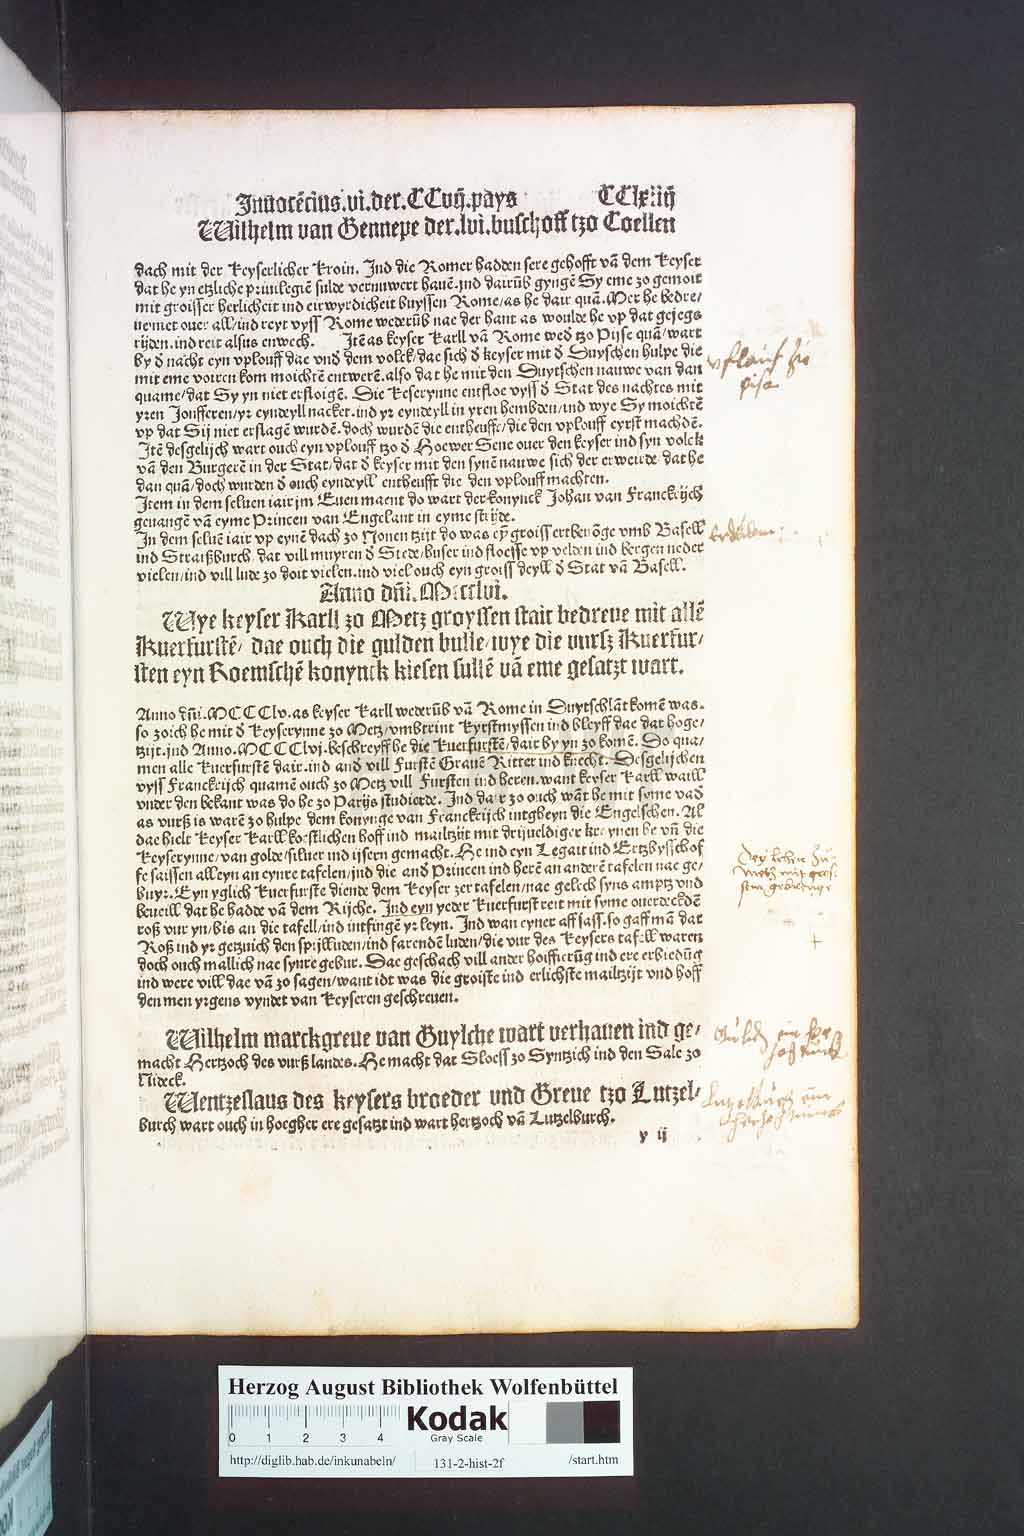 Innocẽcius.vi.der.CCvij.pays CClxiiij
Wilhelm van Gennepe der.lvi.buschoff tzo Coellen
dach mit der keyserlicher kroin. Ind die Romer hadden sere gehofft vã dem keyser
dat he yn etzliche priuilegiẽ sulde vernuwert hauẽ.ind dairũb gyngẽ Sy eme zo gemoit
mit groisser herlicheit ind eirwyrdicheit buyssen Rome/as he dair quã.Mer he bedre/
uet niet ouer all/ind reyt vyss Rome wederũb nae der hant as woulde he vp dat gejegs
rijden.ind reit alsus enwech. Itẽ as keyser Karll vã Rome wed tzo Pijse quã/wart
by d nacht eyn vplouff dae vnd dem volck/dae sich d keyser mit d Duytschen hulpe die
mit eme voiren kom moichtẽ entwerẽ.also dat he mit den Duytschen nauwe van dan
quame/dat Sy yn niet ersloigẽ. Die keserynne entfloe vyss d Stat des nachtes mit
yren Jonfferen/yr eyndeyll nacket.ind yr eyndeyll in yren hembden/ind wye Sy moichtẽ
vp dat Sij niet erslagẽ wurdẽ.doch wurdẽ die entheufft/die den vplouff eyrst machdẽ.
Itẽ desgelijch wart ouch eyn vplouff tzo d Hoewer Sene ouer den keyser ind syn volck
vã den Burgerẽ in der Stat/dat d keyser mit den synẽ nauwe sich der erweirde dat he
dan quã/doch wurden d ouch eyndeyll entheufft die den vplouff machten.
Item in dem seluen iair jm Euen maent do wart der konynck Johan van Franckrijch
geuangẽ vã eyme Princen van Engelant in eyme strijde.
In dem seluẽ iair vp eynẽ dach zo Nonen tzijt do was eỹ groiss ertbeuõge vmb Basell
ind Straißburch. dat vill muyren d Stede/huser ind sloesse vp velden ind bergen neder
vielen/ind vill lude zo doit vielen.ind viel ouch eyn groiss deyll d Stat vã Basell.
Anno dñi.Mccclvi.
Wye keyser Karll zo Metz groyssen stait bedreue mit allẽ
Kuerfurstẽ/ dae ouch die gulden bulle/wye die vursz Kuerfur/
sten eyn Roemschẽ konynck kiesen sullẽ vã eme gesatzt wart.
Anno dñi.MCCCLv.as keyser Karll wederũb vã Rome in Duytschlãt komẽ was.
so zoich he mit d keyserynne zo Metz/vmbtrint kyrstmyssen ind bleyff dae dat hoge/
tzijt.ind Anno.MCCCLvj.beschreyff he die kuerfurstẽ/dair by yn zo komẽ. Do qua/
men alle kuerfurstẽ dair.ind and vill Furstẽ Grauẽ Ritter ind knecht. Desgelijchen
vyss Franckrijch quamẽ ouch zo Metz vill Fursten ind heren.want keyser Karll waill
vnder den bekant was do he zo Parijs studierde. Ind dair zo ouch wãt he mit syme vad
as vurß is warẽ zo hulpe dem konynge van Franckrijch intgheyn die Engelschen. Al
dae hielt keyser Karll koestlichen hoff ind mailtzijt mit drijueldiger kroynen he vñ die
keyserynne/van golde/siluer ind ijsern gemacht. He ind eyn Legait ind Ertzbysschof
fe saissen alleyn an eynre tafelen/ind die and Princen ind herẽ an anderẽ tafelen nae ge/
burt. Eyn yglich kuerfurste diende dem keyser zer tafelen/nae gelech syns amptz vnd
beueill dat he hadde vã dem Rijche. Ind eyn yeder kuerfurst reit mit syme ouerdecktẽ
roß vur yn/bis an die tafell/ind intfingẽ yr leyn. Ind wan eyner aff sass.so gaff mã dat
Roß ind yr getzuich den spijlluden/ind farendẽ luden/die vur des keysers tafell waren
doch ouch mallich nae synre gebur. Dae geschach vill ander hoiffierũg ind ere erbiedũg
ind were vill dae vã zo sagen/want idt was die groiste ind erlichste mailtzijt vnd hoff
den men yrgens vyndet van keyseren geschreuen.
Wilhelm marckgreue van Guylche wart verhauen ind ge/
macht Hertzoch des vurß landes. He macht dat Sloess zo Syntzich ind den Sale zo
Nideck.
Wentzeslaus des keysers broeder vnd Greue tzo Lutzel/
burch wart ouch in hoegher ere gesatzt ind wart hertzoch vã Lutzelburch.
y ij
vflauf zu
pisa
Erdbidem
Metz mit gros
Herzog August Bibliothek Wolfenbüttel
0 1 2 3 4
Kodak
Gray Scale
http://diglib.hab.de/inkunabeln/ 131-2-hist-2f /start.htm